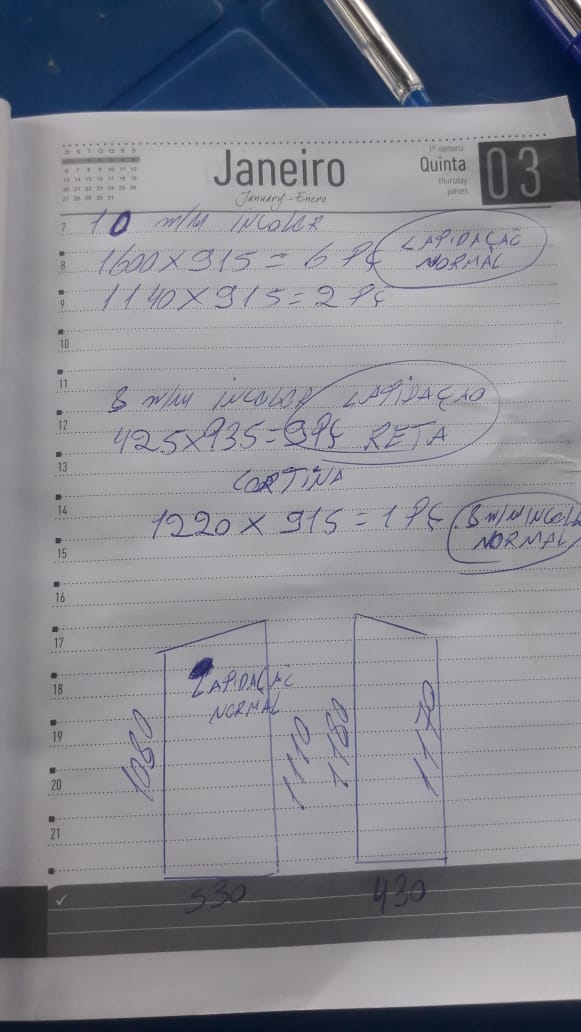 D S T Q Q S S
Janeiro
January - Enero
1ª semana
Quinta
thursday
jueves
03
7
10 m/m INCOLOR
8
1600 X 915 = 6 PÇ
LAPIDAÇÃO
NORMAL
9
1140 X 915 = 2 PÇ
10
11
8 m/m INCOLOR LAPIDAÇÃO
12
425 X 935 = 9 PÇ RETA
13
CORTINA
14
1220 X 915 = 1 PÇ
8 m/m INCOLOR
NORMAL
15
16
17
18
LAPIDAÇÃO
NORMAL
19
1080
1110
1180
1170
20
21
530
430